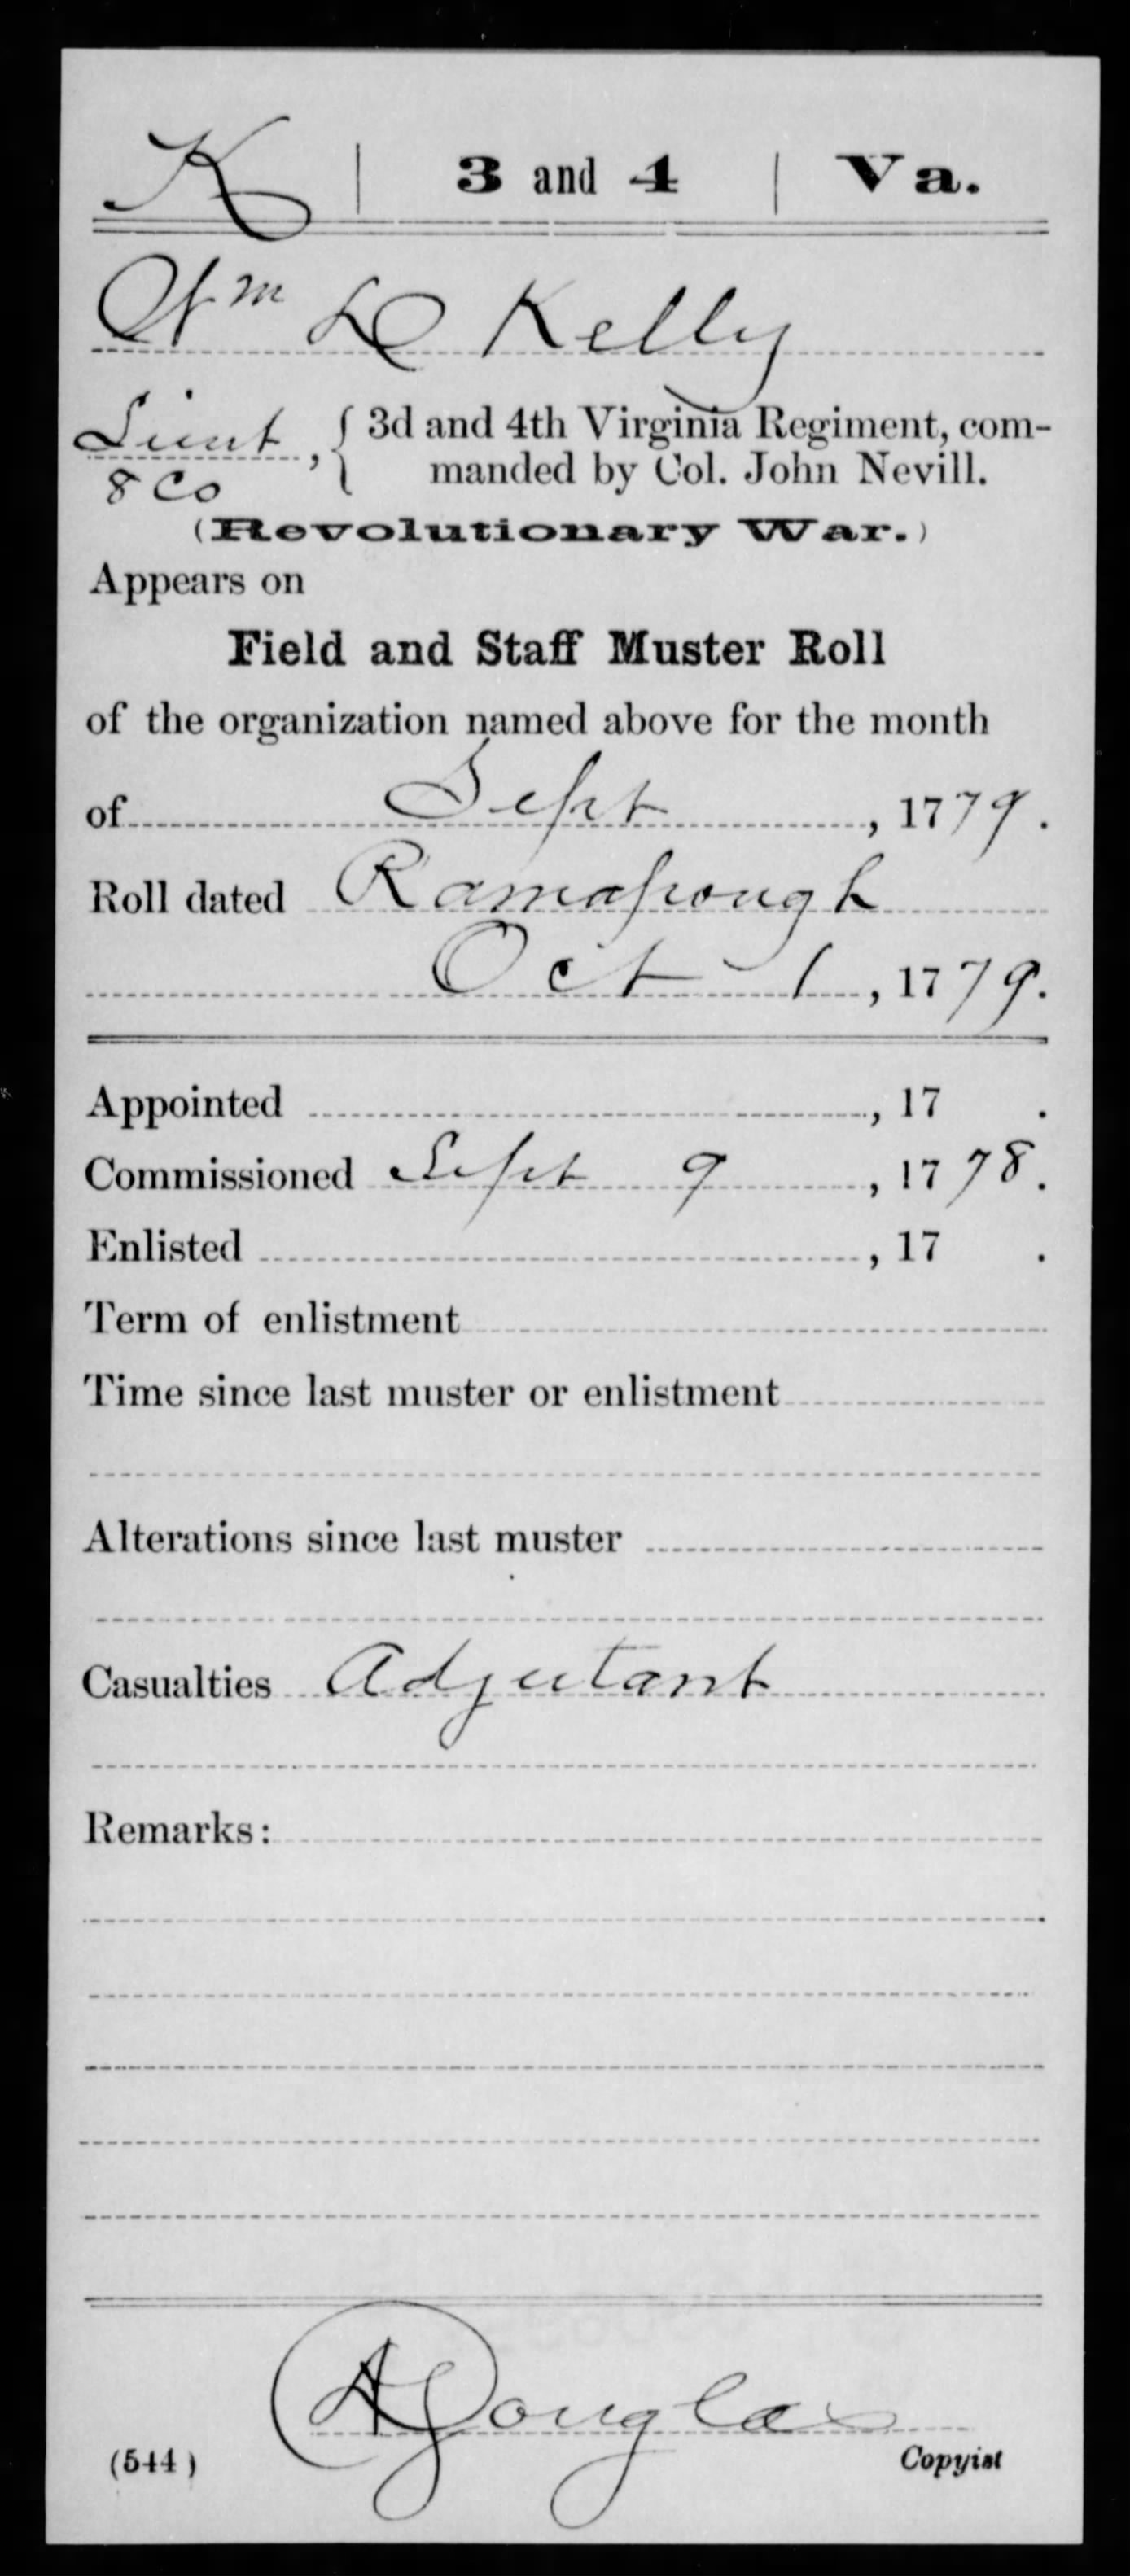 K | 3 and 4 | Va.
Wm L Kelly
Lieut, { 3d and 4th Virginia Regiment, com-
8 Co manded by Col. John Nevill.
(Revolutionary War.)
Appears on
Field and Staff Muster Roll
of the organization named above for the month
of Sept, 1779.
Roll dated Ramapough
Oct 1, 1779.
Appointed , 17 .
Commissioned Sept 9, 1778.
Enlisted , 17 .
Term of enlistment
Time since last muster or enlistment
Alterations since last muster
Casualties Adjutant
Remarks:
A Douglas
(544) Copyist